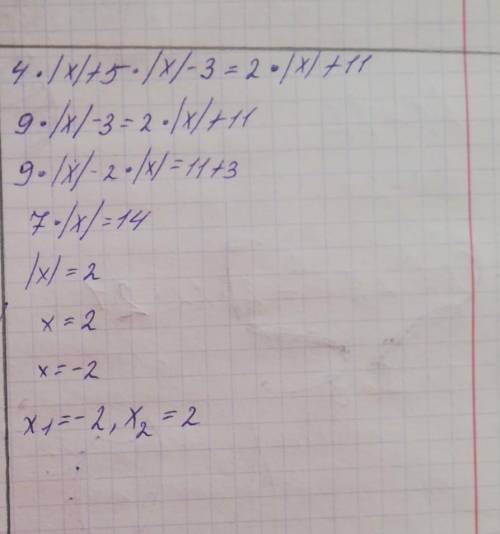 4·|x|+5·|x|-3=2·|x|+11
9·|x|-3=2·|x|+11
9·|x|-2·|x|=11+3
7·|x|=14
|x|=2
x=2
x=-2
x₁=-2, x₂=2